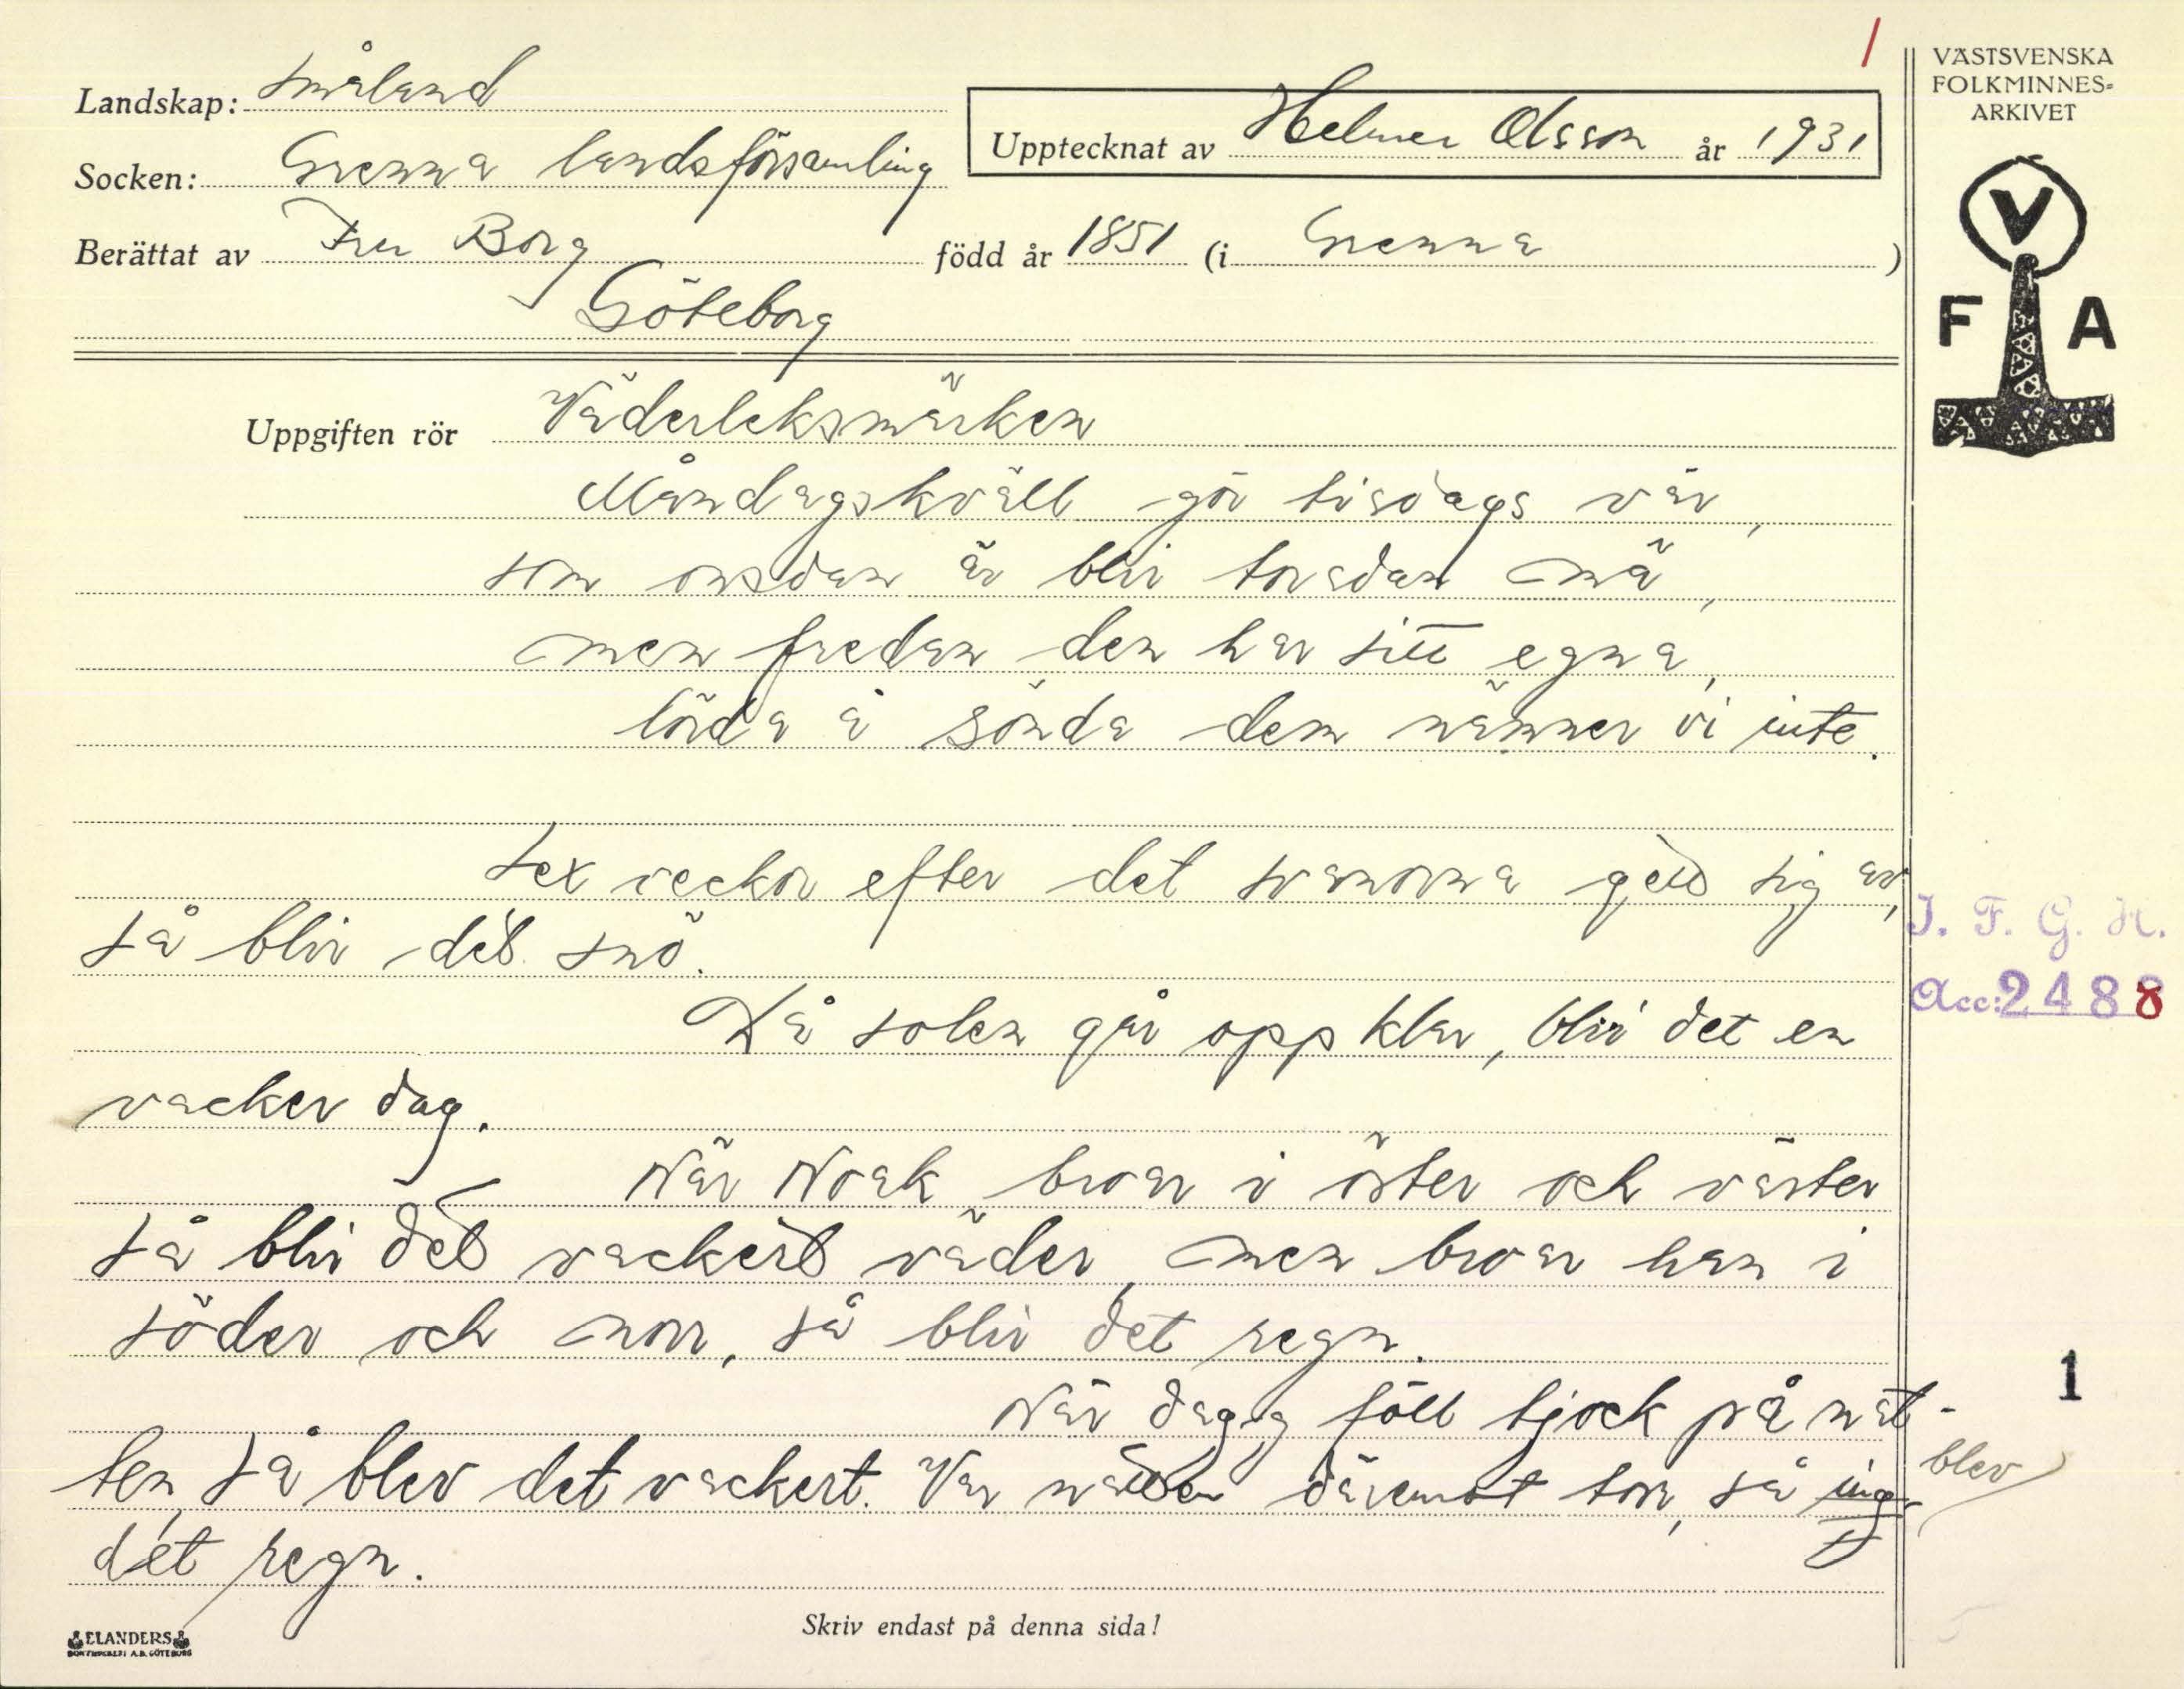 1
VÄSTSVENSKA
FOLKMINNES-
ARKIVET
Landskap: Småland
Upptecknat av Helmer Olsson år 1931
Socken: Grenna landsförsamling
Berättat av Fru Borg född år 1851 (i Grenna)
Göteborg
V
F A
Uppgiften rör Väderleksmärken
Måndagskväll gör tisdags vär,
som onsdan är blir torsdan mä,
men fredan den har sitt egna,
lörda å sönda dem nämner vi inte.
Sex veckor efter det svanorna gett sig av,
så blir det snö.
Då solen går opp klar, blir det en
vacker dag.
När Noak broar i öster och väster
så blir det vackert väder, men broar han i
söder och norr, så blir det regn.
När dagg föll tjock på nat-
ten, så blev det vackert. Var natten däremot torr, så
blev
det regn.
J. F. G. H.
Acc: 2488
1
Skriv endast på denna sida!
ELANDERS
BOKTRYCKERI A.B. GÖTEBORG